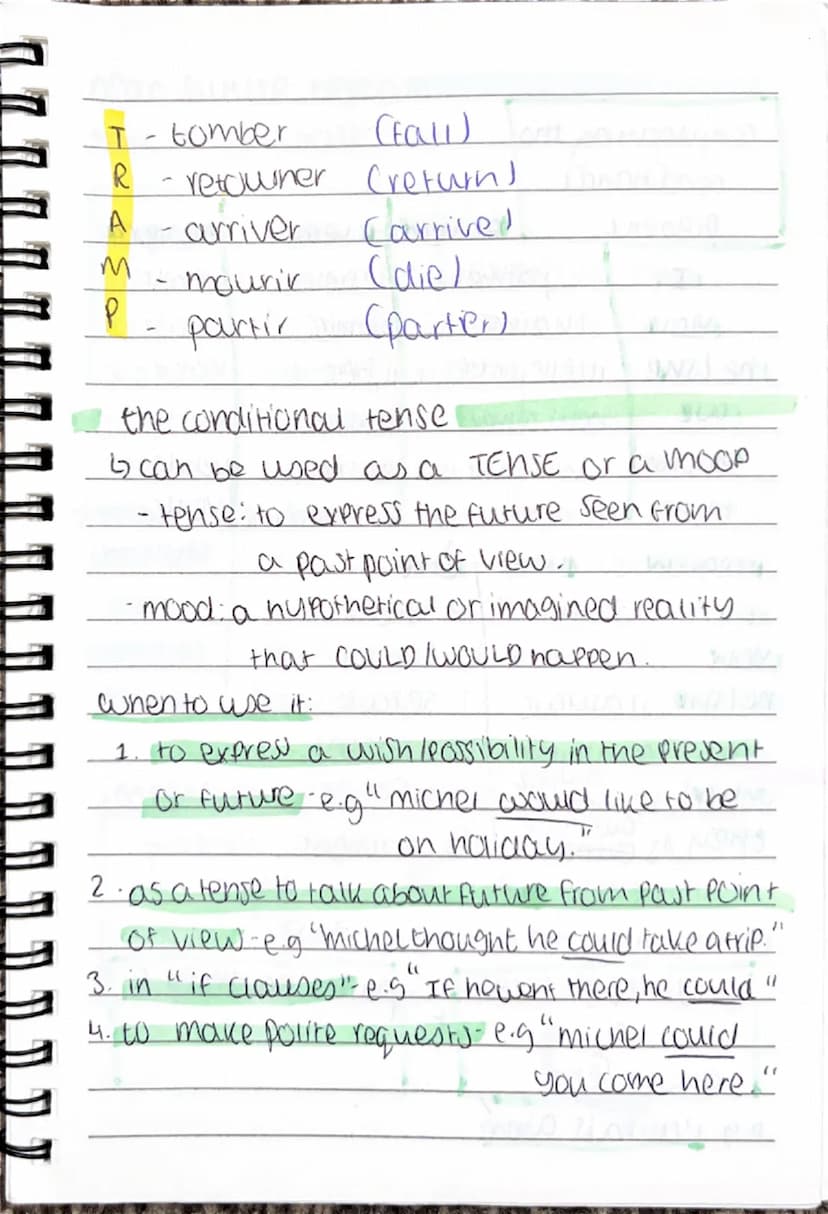 T - tomber (fall)
R - retourner (return)
A - arriver (arrive)
M - mourir (die)
P - partir (parter)
the conditional tense
↳ can be used as a TENSE or a MOOD
- tense: to express the future seen from
a past point of view.
- mood: a hypothetical or imagined reality
that COULD/WOULD happen.
When to use it:
1. to express a wish/possibility in the present
or future - e.g "michel would like to be
on holiday."
2. as a tense to talk about future from past point
of view - e.g "michel thought he could take a trip."
3. in "if clauses" - e.g "If he went there, he could"
4. to make polite requests - e.g "michel could
you come here."